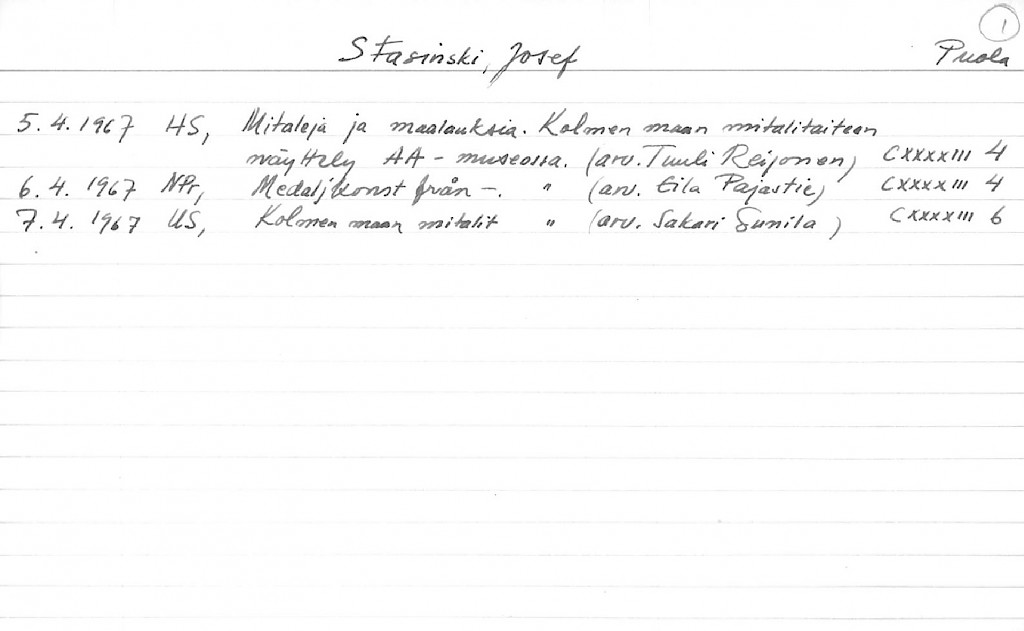 1
Stasinski, Josef Puola
5.4.1967 HS, Mitaleja ja maalauksia. Kolmen maan mitalitaiteen
näyttely AA-museossa. (arv. Tuuli Reijonen) CXXXXIII 4
6.4.1967 NPr, Medaljkonst från -. " (arv. Eila Pajastie) CXXXXIII 4
7.4.1967 US, Kolmen maan mitalit " (arv. Sakari Sunila) CXXXXIII 6